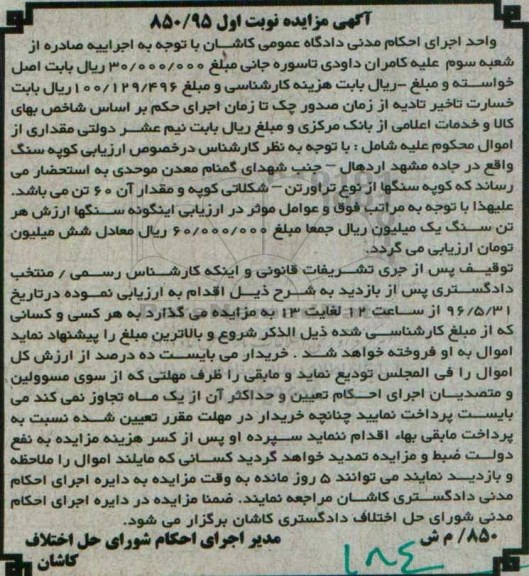 آگهی مزایده نوبت اول ۸۵۰/۹۵
واحد اجرای احکام مدنی دادگاه عمومی کاشان با توجه به اجراییه صادره از
شعبه سوم علیه کامران داودی تاسوره جانی مبلغ ۳۰/۰۰۰/۰۰۰ ریال بابت اصل
خواسته و مبلغ -ریال بابت هزینه کارشناسی و مبلغ ۱۰۰/۱۲۹/۴۹۶ریال بابت
خسارت تاخیر تادیه از زمان صدور چک تا زمان اجرای حکم بر اساس شاخص بهای
کالا و خدمات اعلامی از بانک مرکزی و مبلغ ریال بابت نیم عشر دولتی مقداری از
اموال محکوم علیه شامل : با توجه به نظر کارشناس درخصوص ارزیابی کوپه سنگ
واقع در جاده مشهد اردهال – جنب شهدای گمنام معدن موحدی به استحضار می
رساند که کوپه سنگها از نوع تراورتن – شکلاتی کوپه و مقدار آن ۶۰ تن می باشد.
علیهذا با توجه به مراتب فوق و عوامل موثر در ارزیابی اینگونه سنگها ارزش هر
تن سنگ یک میلیون ریال جمعا مبلغ ۶۰/۰۰۰/۰۰۰ ریال معادل شش میلیون
تومان ارزیابی می گردد.
توقیف پس از جری تشریفات قانونی و اینکه کارشناس رسمی / منتخب
دادگستری پس از بازدید به شرح ذیل اقدام به ارزیابی نموده درتاریخ
۹۶/۵/۳۱ از ساعت ۱۲ لغایت ۱۳ به مزایده می گذارد به هر کسی و کسانی
که از مبلغ کارشناسی شده ذیل الذکر شروع و بالاترین مبلغ را پیشنهاد نماید
اموال به او فروخته خواهد شد . خریدار می بایست ده درصد از ارزش کل
اموال را فی المجلس تودیع نماید و مابقی را ظرف مهلتی که از سوی مسوولین
و متصدیان اجرای احکام تعیین و حداکثر آن از یک ماه تجاوز نمی کند می
بایست پرداخت نمایید چنانچه خریدار در مهلت مقرر تعیین شده نسبت به
پرداخت مابقی بهاء اقدام ننماید سپرده او پس از کسر هزینه مزایده به نفع
دولت ضبط و مزایده تمدید خواهد گردید کسانی که مایلند اموال را ملاحظه
و بازدید نمایند می توانند ۵ روز مانده به وقت مزایده به دایره اجرای احکام
مدنی دادگستری کاشان مراجعه نمایند. ضمنا مزایده در دایره اجرای احکام
مدنی شورای حل اختلاف دادگستری کاشان برگزار می شود.
۸۵۰/ م ش مدیر اجرای احکام شورای حل اختلاف
کاشان
۱۸۴